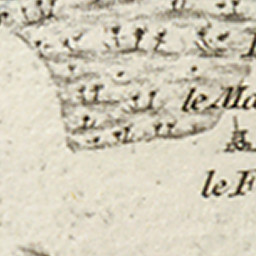 le Ma
le F